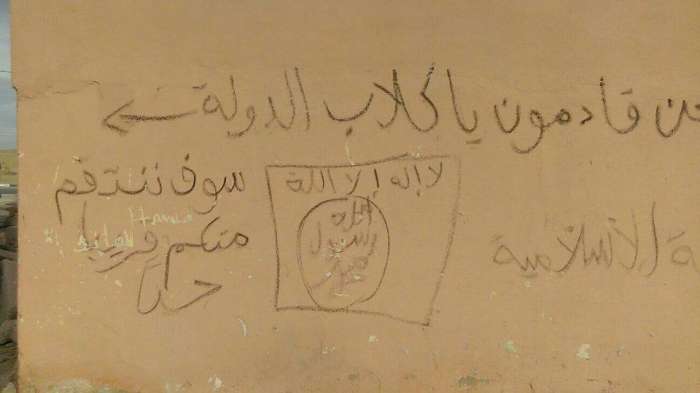 ن قادمون يا كلاب الدولة
سوف ننتقم
منكم قريبا
جدا
لا إله إلا الله
الله
رسول
محمد
ة الإسلامية